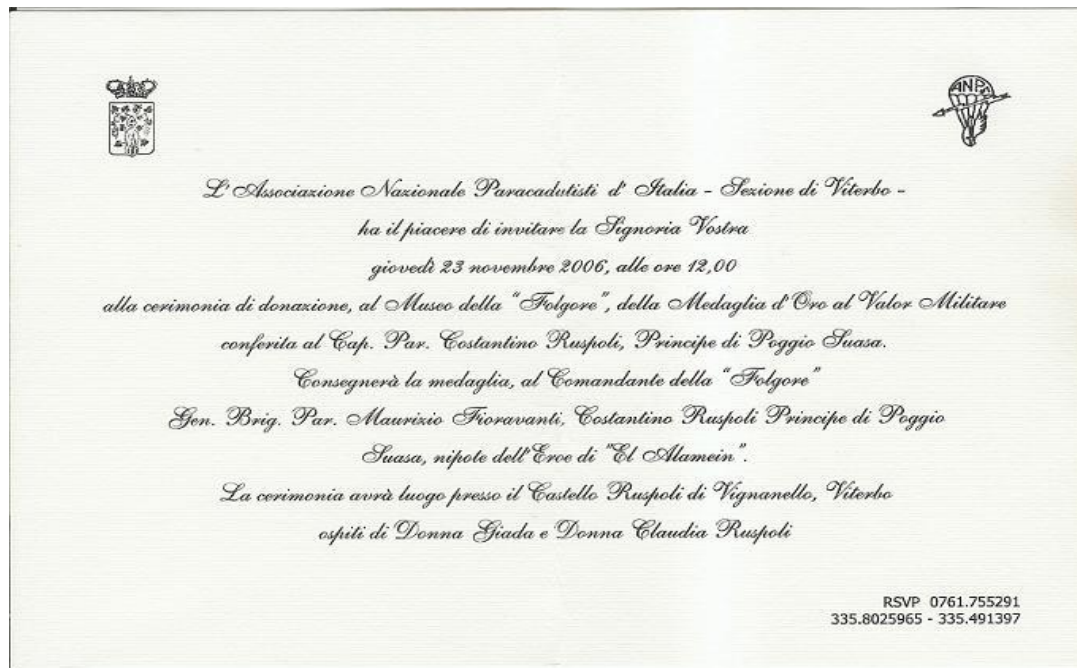 ANPd'I
L'Associazione Nazionale Paracadutisti d' Italia - Sezione di Viterbo -
ha il piacere di invitare la Signoria Vostra
giovedì 23 novembre 2006, alle ore 12,00
alla cerimonia di donazione, al Museo della "Folgore", della Medaglia d'Oro al Valor Militare
conferita al Cap. Par. Costantino Ruspoli, Principe di Poggio Suasa.
Consegnerà la medaglia, al Comandante della "Folgore"
Gen. Brig. Par. Maurizio Fioravanti, Costantino Ruspoli Principe di Poggio
Suasa, nipote dell'Eroe di "El Alamein".
La cerimonia avrà luogo presso il Castello Ruspoli di Vignanello, Viterbo
ospiti di Donna Giada e Donna Claudia Ruspoli
RSVP 0761.755291
335.8025965 - 335.491397